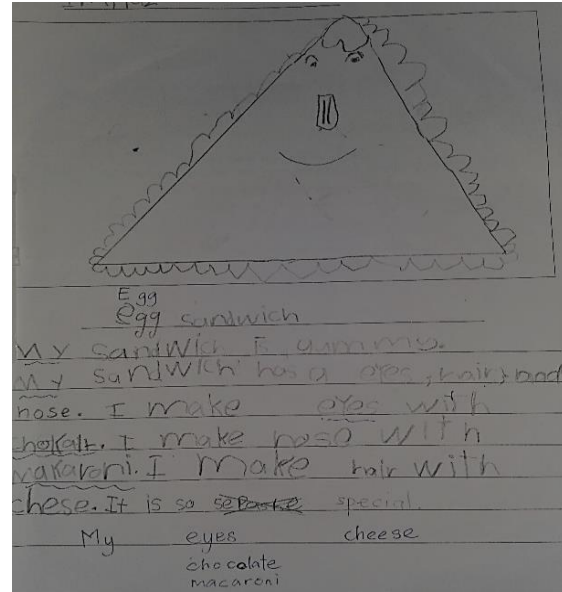 Egg
egg sandwich
My sandwich is yummy.
My sandwich has a eyes, hair, and
nose. I make eyes with
chokalt. I make nose with
makaroni. I make hair with
chese. It is so special.
My eyes cheese
chocolate
macaroni